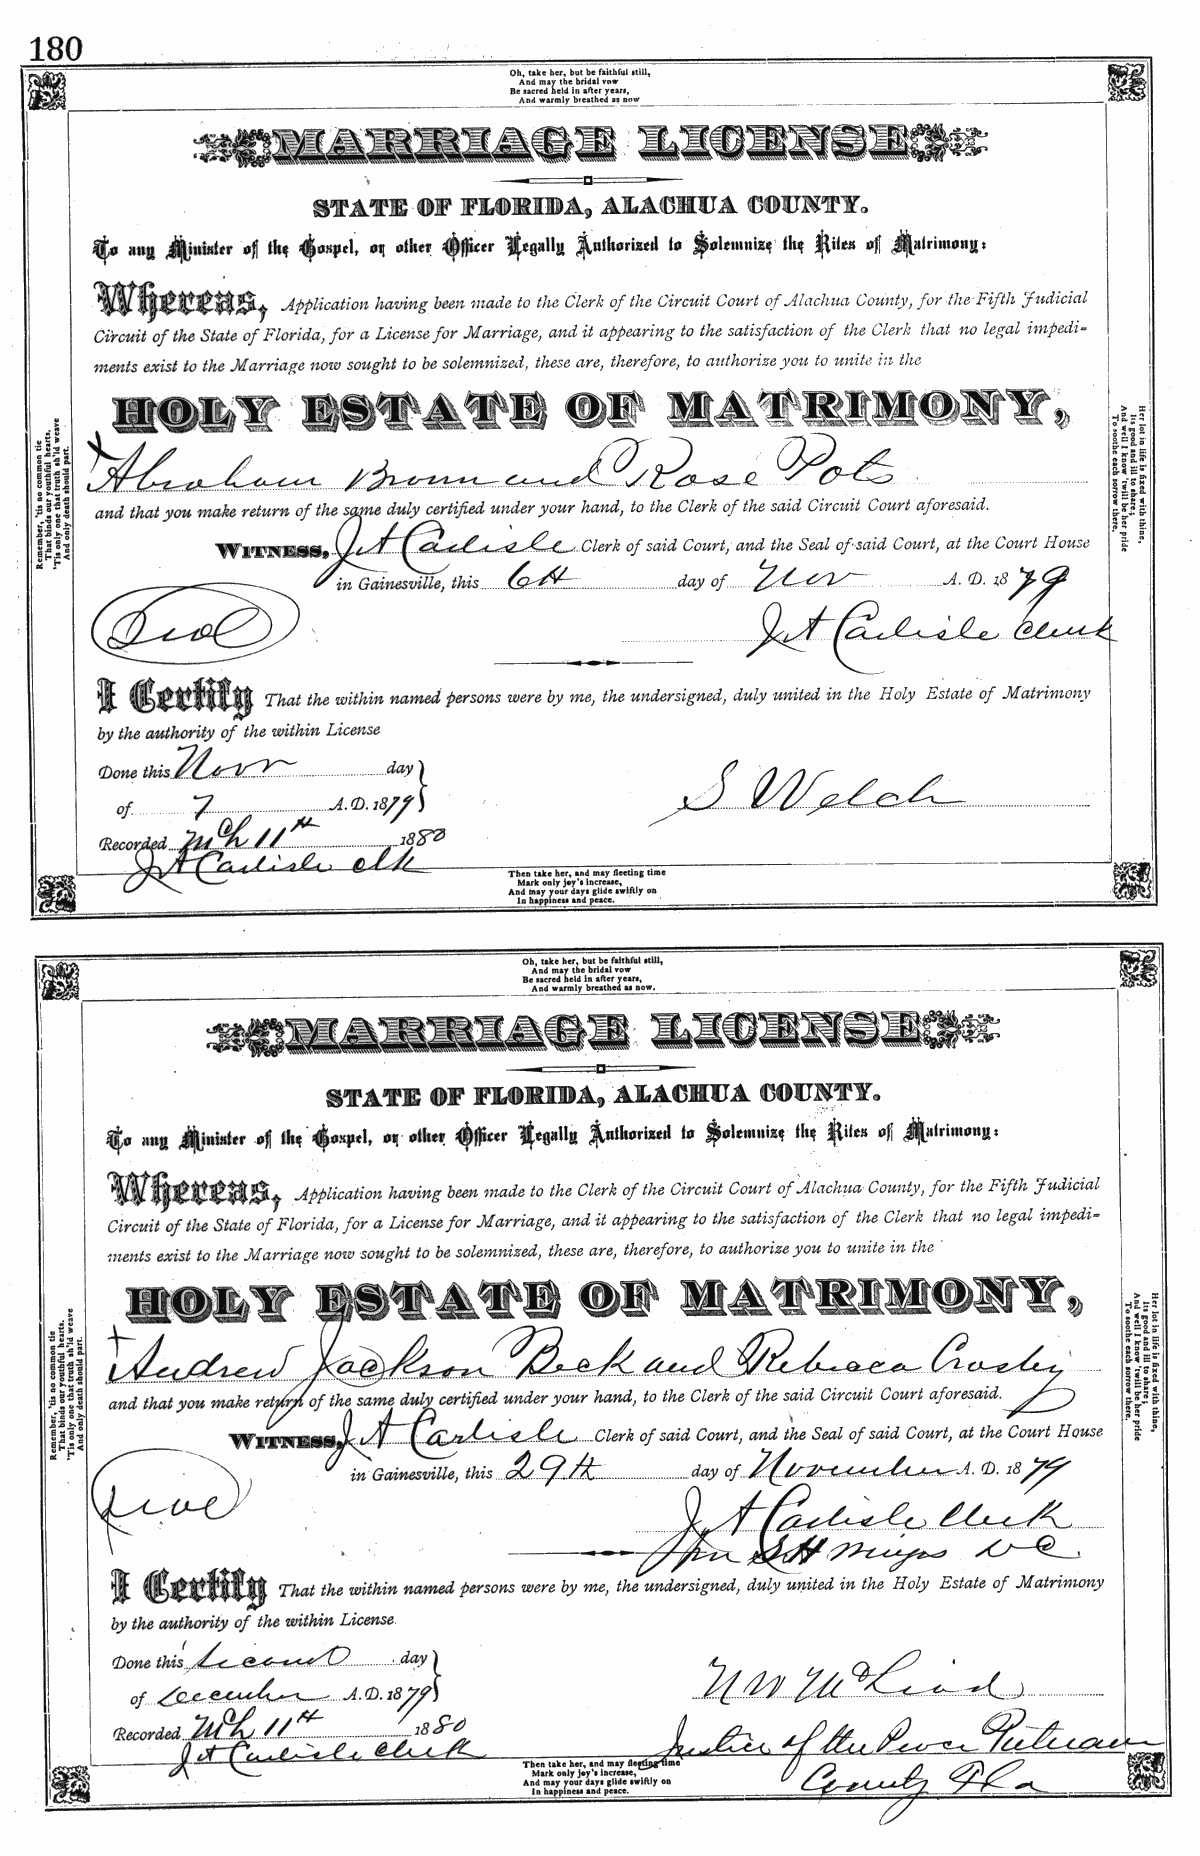 180
Oh, take her, but be faithful still,
And may the bridal vow
Be sacred held in after years,
And warmly breathed as now
MARRIAGE LICENSE
STATE OF FLORIDA, ALACHUA COUNTY.
To any Minister of the Gospel, or other Officer Legally Authorized to Solemnize the Rites of Matrimony:
Whereas, Application having been made to the Clerk of the Circuit Court of Alachua County, for the Fifth Judicial
Circuit of the State of Florida, for a License for Marriage, and it appearing to the satisfaction of the Clerk that no legal impedi=
ments exist to the Marriage now sought to be solemnized, these are, therefore, to authorize you to unite in the
HOLY ESTATE OF MATRIMONY,
Abraham Brown and Rose Pots
and that you make return of the same duly certified under your hand, to the Clerk of the said Circuit Court aforesaid.
WITNESS, J A Carlisle Clerk of said Court, and the Seal of said Court, at the Court House
in Gainesville, this 6th day of Nov A. D. 1879
Seal
J A Carlisle Clerk
I Certify That the within named persons were by me, the undersigned, duly united in the Holy Estate of Matrimony
by the authority of the within License
Done this Novr day
of 7 A. D. 1879
S Welch
Recorded Mch 11th 1880
J A Carlisle clk
Remember, 'tis no common tie
That binds our youthful hearts,
'Tis only one that truth sh'ld weave
And only death should part.
Her lot in life is fixed with thine,
Its good and ill to share;
And well I know 'twill be her pride
To soothe each sorrow there.
Then take her, and may fleeting time
Mark only joy's increase,
And may your days glide swiftly on
In happiness and peace.
Oh, take her, but be faithful still,
And may the bridal vow
Be sacred held in after years,
And warmly breathed as now.
MARRIAGE LICENSE
STATE OF FLORIDA, ALACHUA COUNTY.
To any Minister of the Gospel, or other Officer Legally Authorized to Solemnize the Rites of Matrimony:
Whereas, Application having been made to the Clerk of the Circuit Court of Alachua County, for the Fifth Judicial
Circuit of the State of Florida, for a License for Marriage, and it appearing to the satisfaction of the Clerk that no legal impedi=
ments exist to the Marriage now sought to be solemnized, these are, therefore, to authorize you to unite in the
HOLY ESTATE OF MATRIMONY,
Andrew Jackson Beck and Rebecca Crosby
and that you make return of the same duly certified under your hand, to the Clerk of the said Circuit Court aforesaid.
WITNESS, J A Carlisle Clerk of said Court, and the Seal of said Court, at the Court House
in Gainesville, this 29th day of November A. D. 1879
Seal
J A Carlisle Clerk
D C
I Certify That the within named persons were by me, the undersigned, duly united in the Holy Estate of Matrimony
by the authority of the within License
Done this second day
of December A. D. 1879
N W McLeod
Recorded Mch 11th 1880
J A Carlisle Clerk
Justice of the Peace Putnam
County Fla
Remember, 'tis no common tie
That binds our youthful hearts,
'Tis only one that truth sh'ld weave
And only death should part.
Her lot in life is fixed with thine,
Its good and ill to share;
And well I know 'twill be her pride
To soothe each sorrow there.
Then take her, and may fleeting time
Mark only joy's increase,
And may your days glide swiftly on
In happiness and peace.